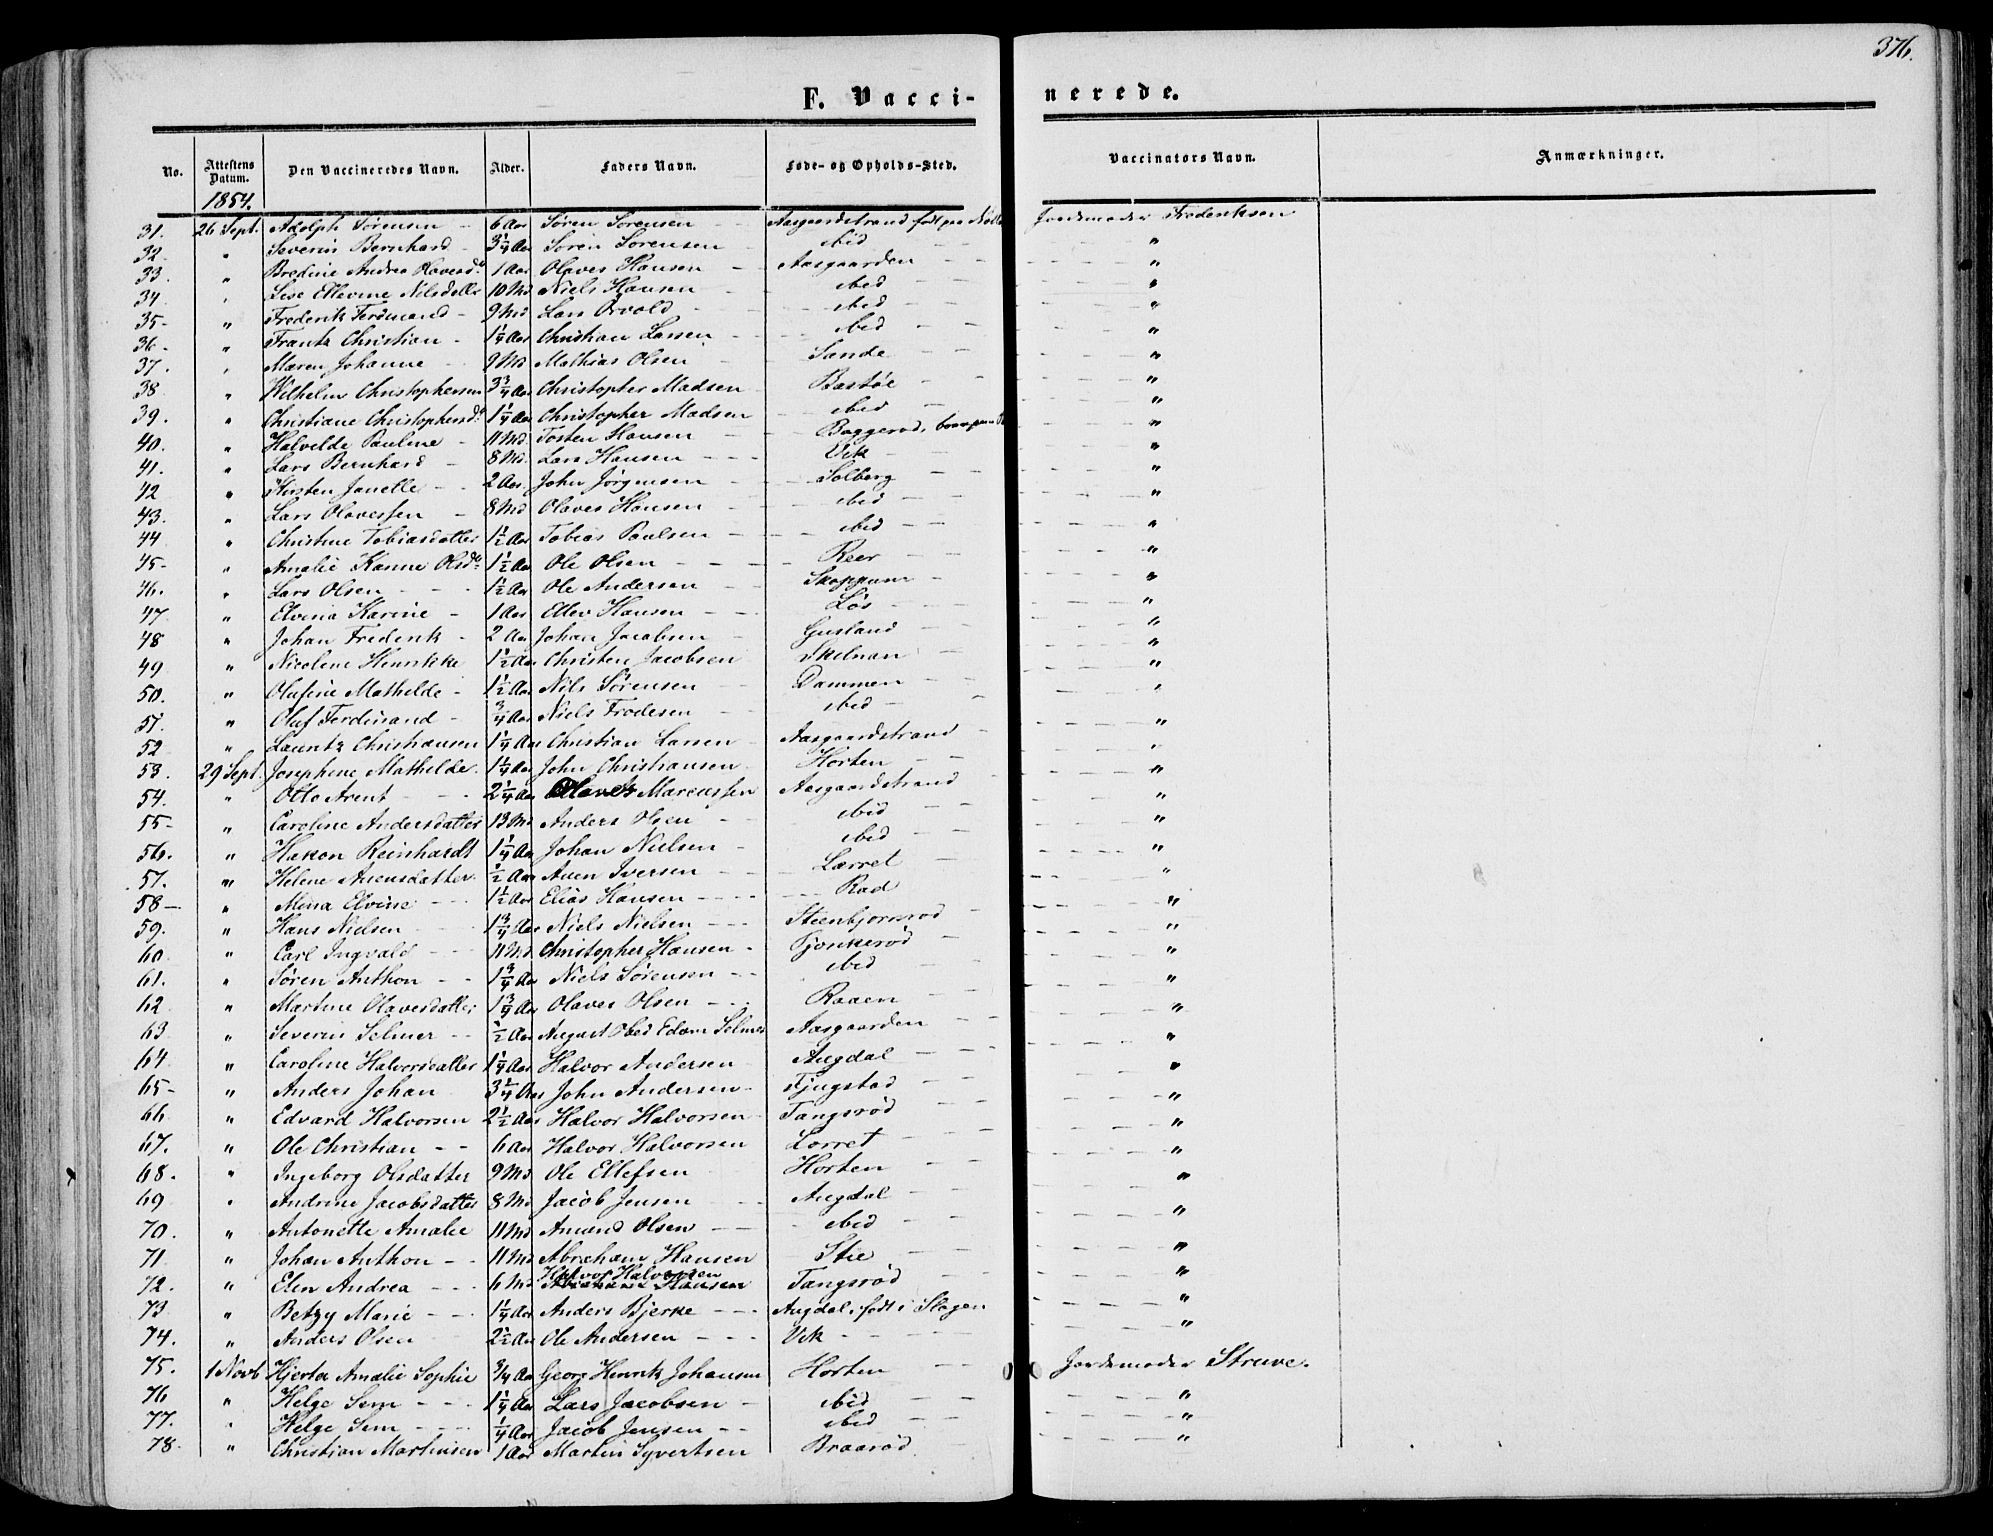 376.
F. Vaccinerede.
No. Attestens Datum. Den Vaccineredes Navn. Alder. Faders Navn. Føde- og Opholds-Sted. Vaccinators Navn. Anmærkninger.
1854.
31. 26 Sept. Adolph Sørensen - 6 Aar Søren Sørensen - Aasgaardstrand født paa Jordemoder Frederiksen
32. " Severin Bernhard - 3 1/4 Aar Søren Sørensen - ibid - "
33. " Bredine Andrea Olavesd. 1 Aar Olaves Hansen - Aasgaarden - "
34. " Lise Ellevine Nilsdatter 10 Md Niels Hansen - ibid - "
35- " Frederik Ferdinand - 9 Md Lars Orvold - ibid - "
36- " Frantz Christian - 1 1/4 Aar Christian Larsen - ibid - "
37. " Maren Johanne - 9 Md Mathias Olsen - Sande - "
38 " Wilhelm Christophersen 3 3/4 Aar Christopher Madsen - Bastöe - "
39. " Christiane Christophersd. 1 1/4 Aar Christopher Madsen - ibid - "
40. " Halvelde Pauline - 11 Md. Tosten Hansen - Baggerød, "
41. " Lars Bernhard - 8 Md. Lars Hansen - Vik - "
42 " Kirsten Janette - 2 Aar. John Jörgensen - Solberg - "
43. " Lars Olavessen - 8 Md Olaves Hansen - ibid - "
44 " Christine Tobiasdatter 1 1/2 Aar Tobias Paulsen - ibid - "
45- " Amalie Hanne Olsd. 1 1/2 Aar Ole Olsen - Reer - "
46. " Lars Olsen - 1 1/2 Aar Ole Andersen - Skoppum - "
47. " Elvina Karine - 1 Aar Ellev Hansen - Lös - "
48 " Johan Frederik - 2 Aar Johan Jacobsen - Gusland - "
49 " Nicoline Henrikke 1 1/2 Aar Christen Jacobsen - "
50. " Olufine Mathilde - 1 1/2 Aar Nils Sörensen - Dammen - "
51. " Oluf Ferdinand - 3/4 Aar Niels Frodesen - ibid - "
52 " Lauritz Christiansen 1 1/4 Aar Christian Larsen - Aasgaardstrand - "
53. 29 Sept. Josephine Mathilde. 1 1/4 Aar John Christiansen - Horten - "
54. " Otto Arent - 2 1/4 Aar Olaves Marcussen Aasgaardstrand "
55- " Caroline Andersdatter 13 Md Anders Olsen - ibid - "
56. " Hakon Reinhardt 1 1/4 Aar Johan Nielsen - ibid - "
57. " Helene Auensdatter. 1/2 Aar Auen Iversen - Lørret - "
58- " Mina Elvine - 1 1/2 Aar Elias Hansen - Rød "
59. " Hans Nielsen - 1 3/4 Aar Niels Nielsen - Steenbjørnrød - "
60. " Carl Ingvald - 11 Md Christopher Hansen - Pjonkerød - "
61. " Sören Anthon - 1 3/4 Aar Niels Sörensen - ibid - "
62 " Martine Olavesdatter 1 3/4 Aar Olaves Olsen - Raaen - "
63 " Severin Selmer - 1/2 Aar August Obed Edam Selmer Aasgaarden - "
64 " Caroline Halvorsdatter 1 1/4 Aar Halvor Andersen - Augdal - "
65- " Anders Johan 3 1/4 Aar John Andersen - Fjugstad - "
66 " Edvard Halvorsen 2 1/2 Aar Halvor Halvorsen Tangsrød - "
67. " Ole Christian - 6 Aar Halvor Halvorsen Lorret - "
68. " Ingeborg Olsdatter 9 Md Ole Ellefsen Horten - "
69 " Andrine Jacobsdatter 8 Md Jacob Jensen - Augdal - "
70. " Antonette Amalie 11 Md Amund Olsen - ibid - "
71 " Johan Anthon - 11 Md Abraham Hansen Stie - "
72. " Elen Andrea - 6 Md Halvor Halvorsen Tangsrød - "
73. " Betzy Marie - 1 1/4 Aar Anders Bjerke - Augdal, født i Slagen "
74. " Anders Olsen 2 1/2 Aar Ole Andersen - Vik - "
75. 1 Novb Hjerta Amalie Sophie 3/4 Aar Georg Henrik Johansen Horten - Jordemoder Struve.
76 " Helge Sem - 1 1/4 Aar Lars Jacobsen - ibid - "
77. " Helge Sem - 1/4 Aar Jacob Jensen - ibid - "
78. " Christian Martinsen 1 Aar Martin Syvertsen Braarød - "